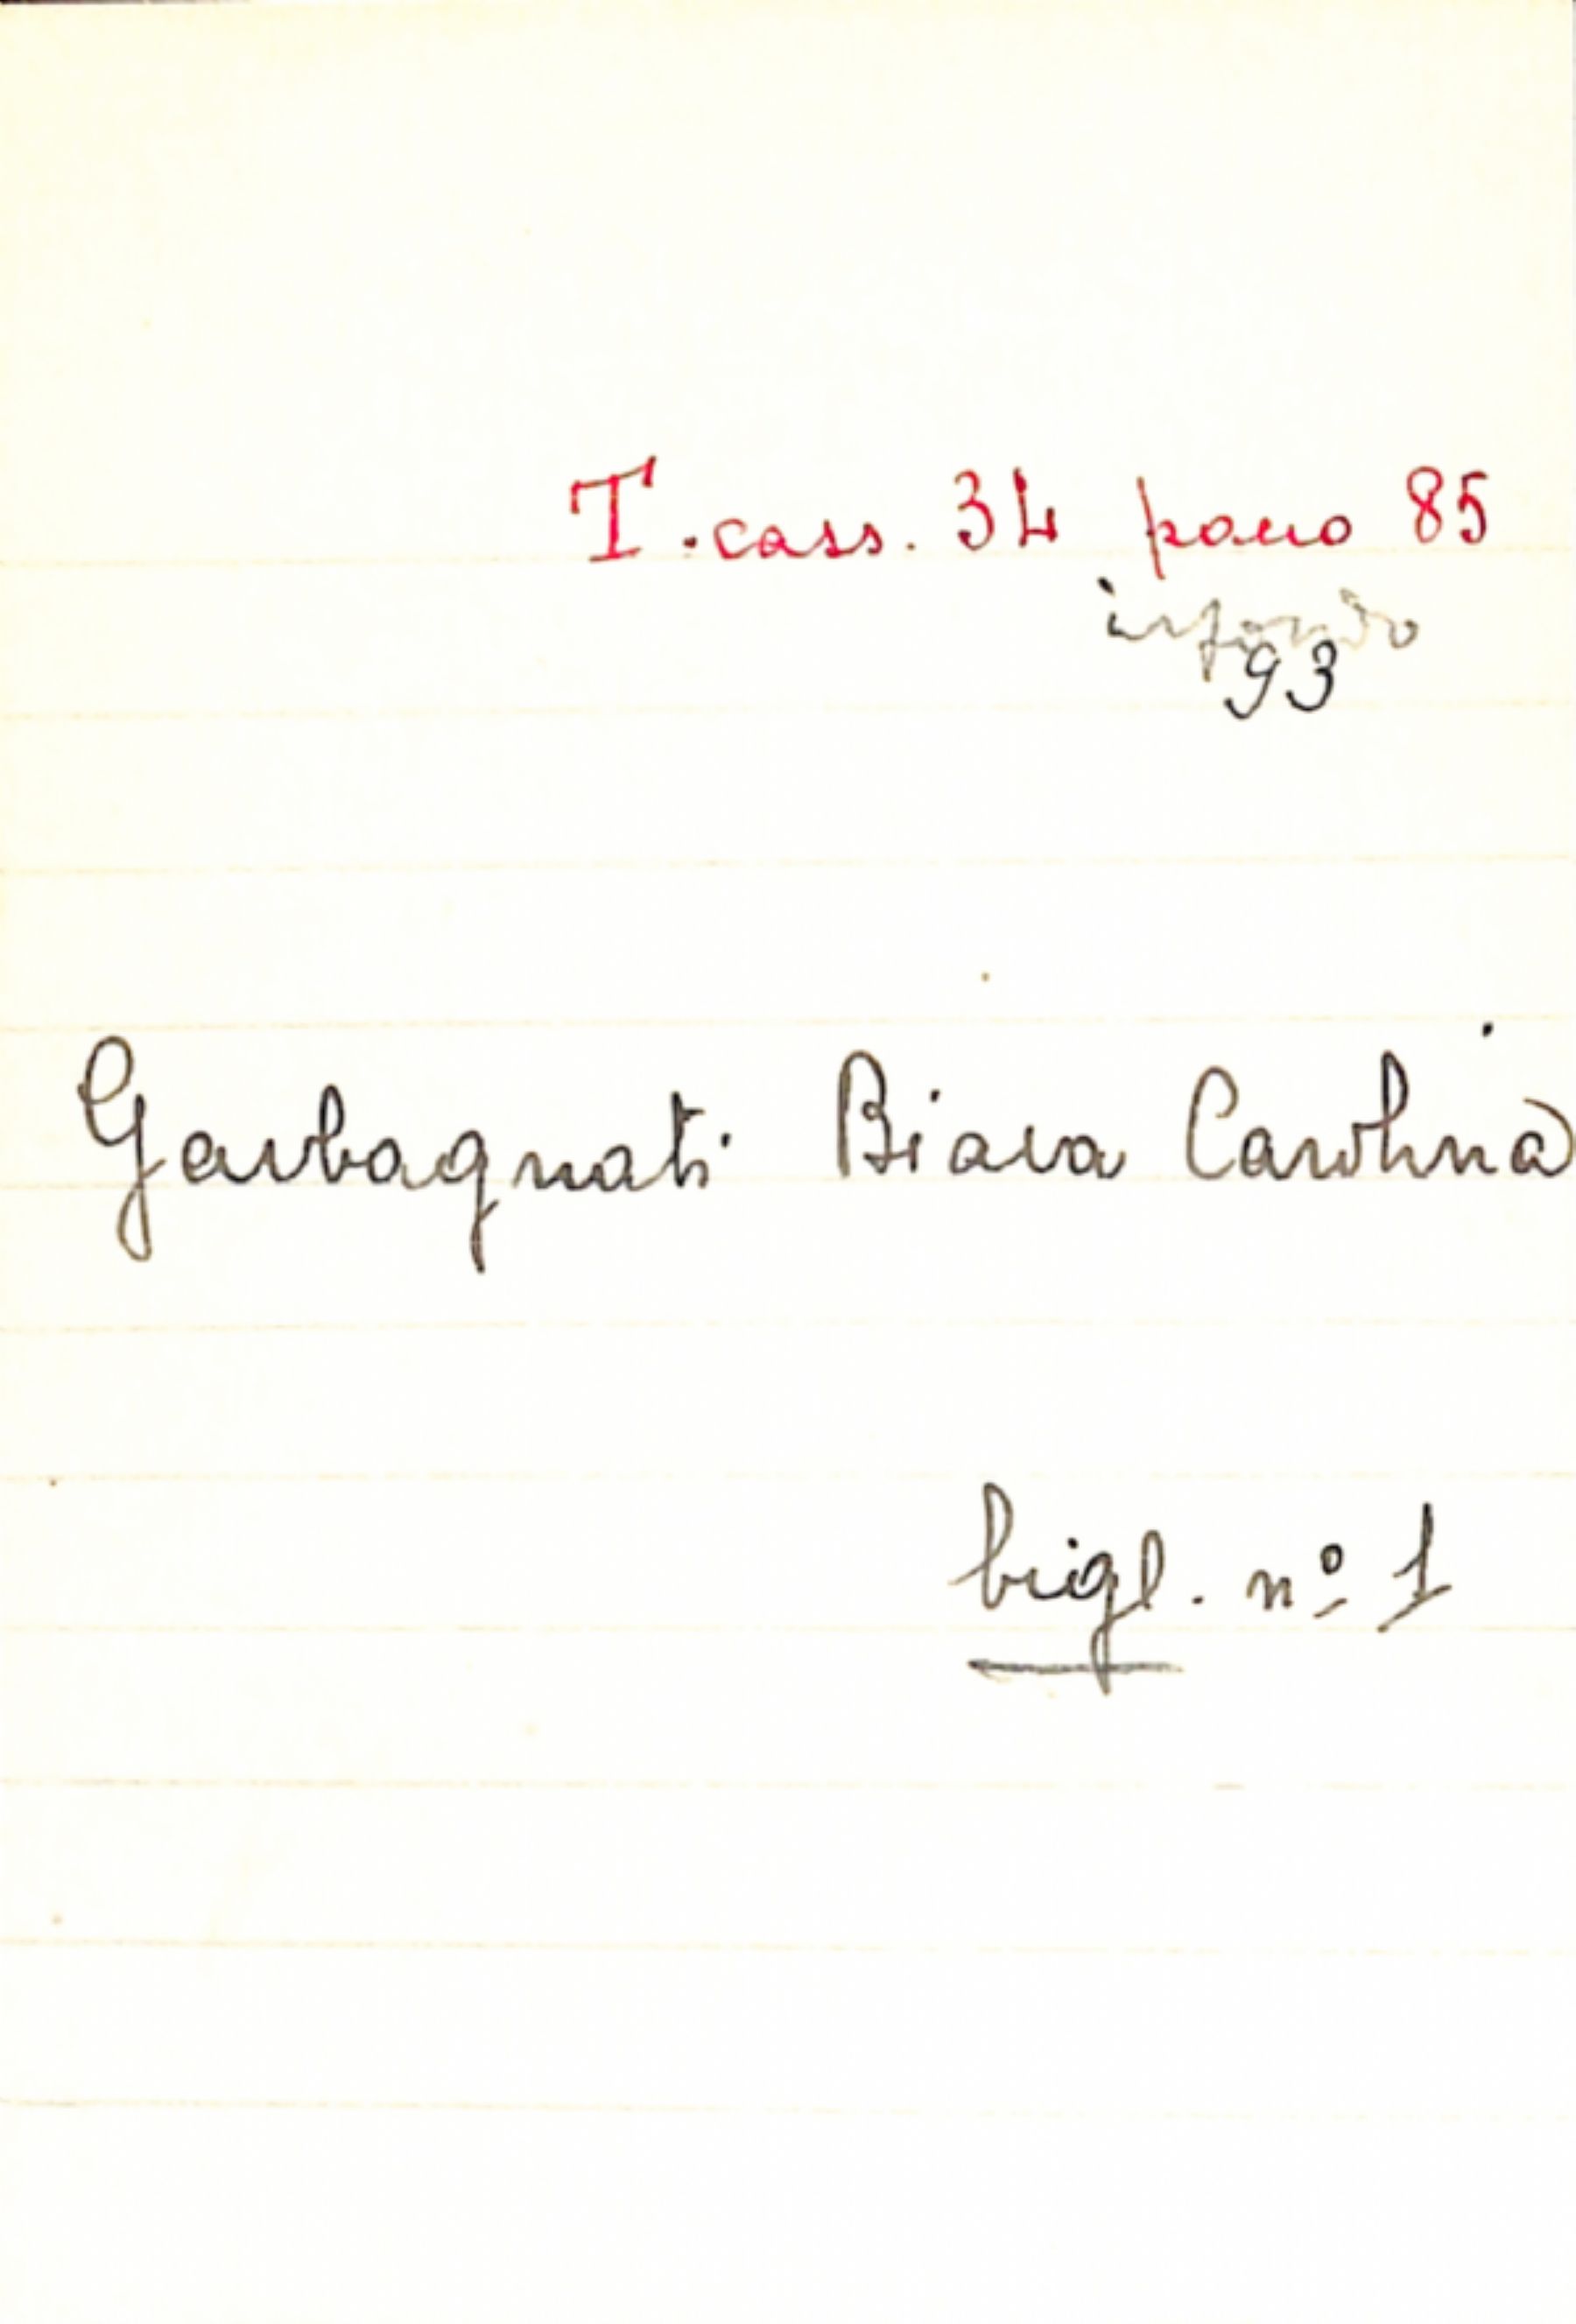 T. cass. 34 pacco 85
in fondo
93
Garbagnati Biava Carolina
bigl. nº 1